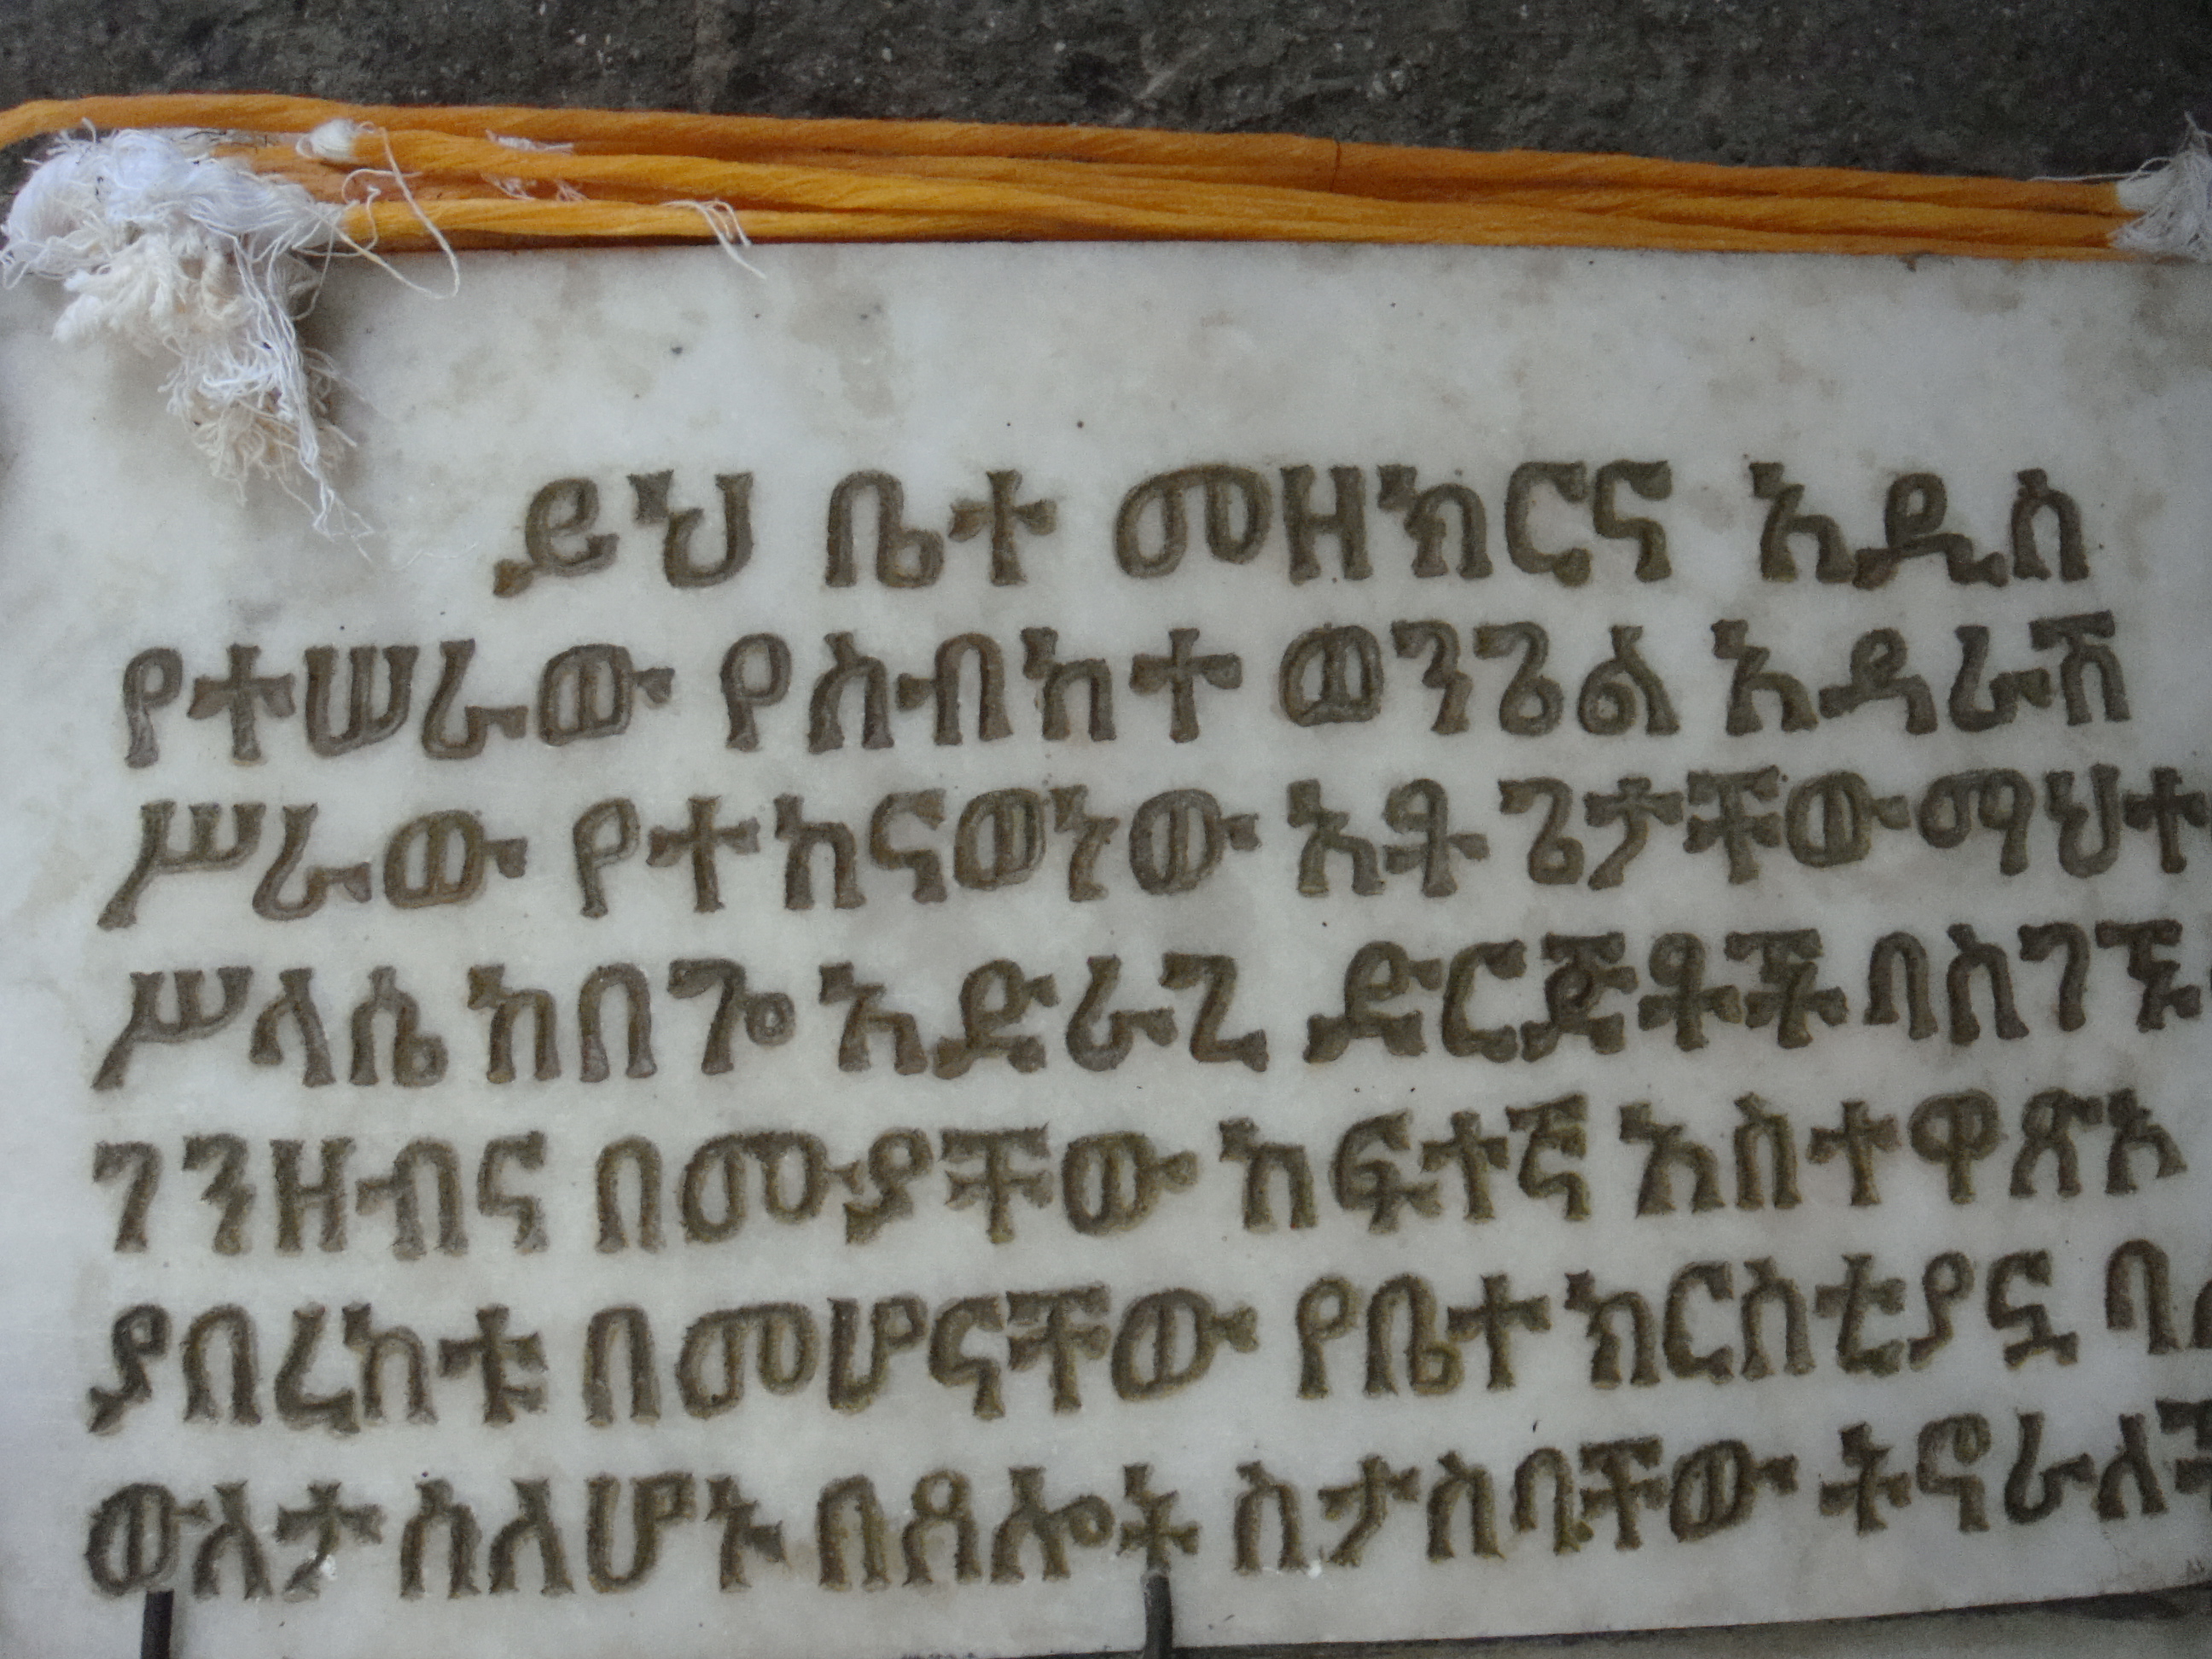 ይህ ቤተ መዘክርና አዲስ
የተሠራው የስብከተ ወንጌል አዳራሽ
ሥራው የተከናወነው አቶ ጌታቸው ማህተ
ሥላሴ ከበጎ አድራጊ ድርጅቶች ባስገኙ
ገንዘብና በሙያቸው ከፍተኛ አስተዋጽኦ
ያበረከቱ በመሆናቸው የቤተ ክርስቲያኗ
ውለታ ስለሆኑ በጸሎት ስታስባቸው